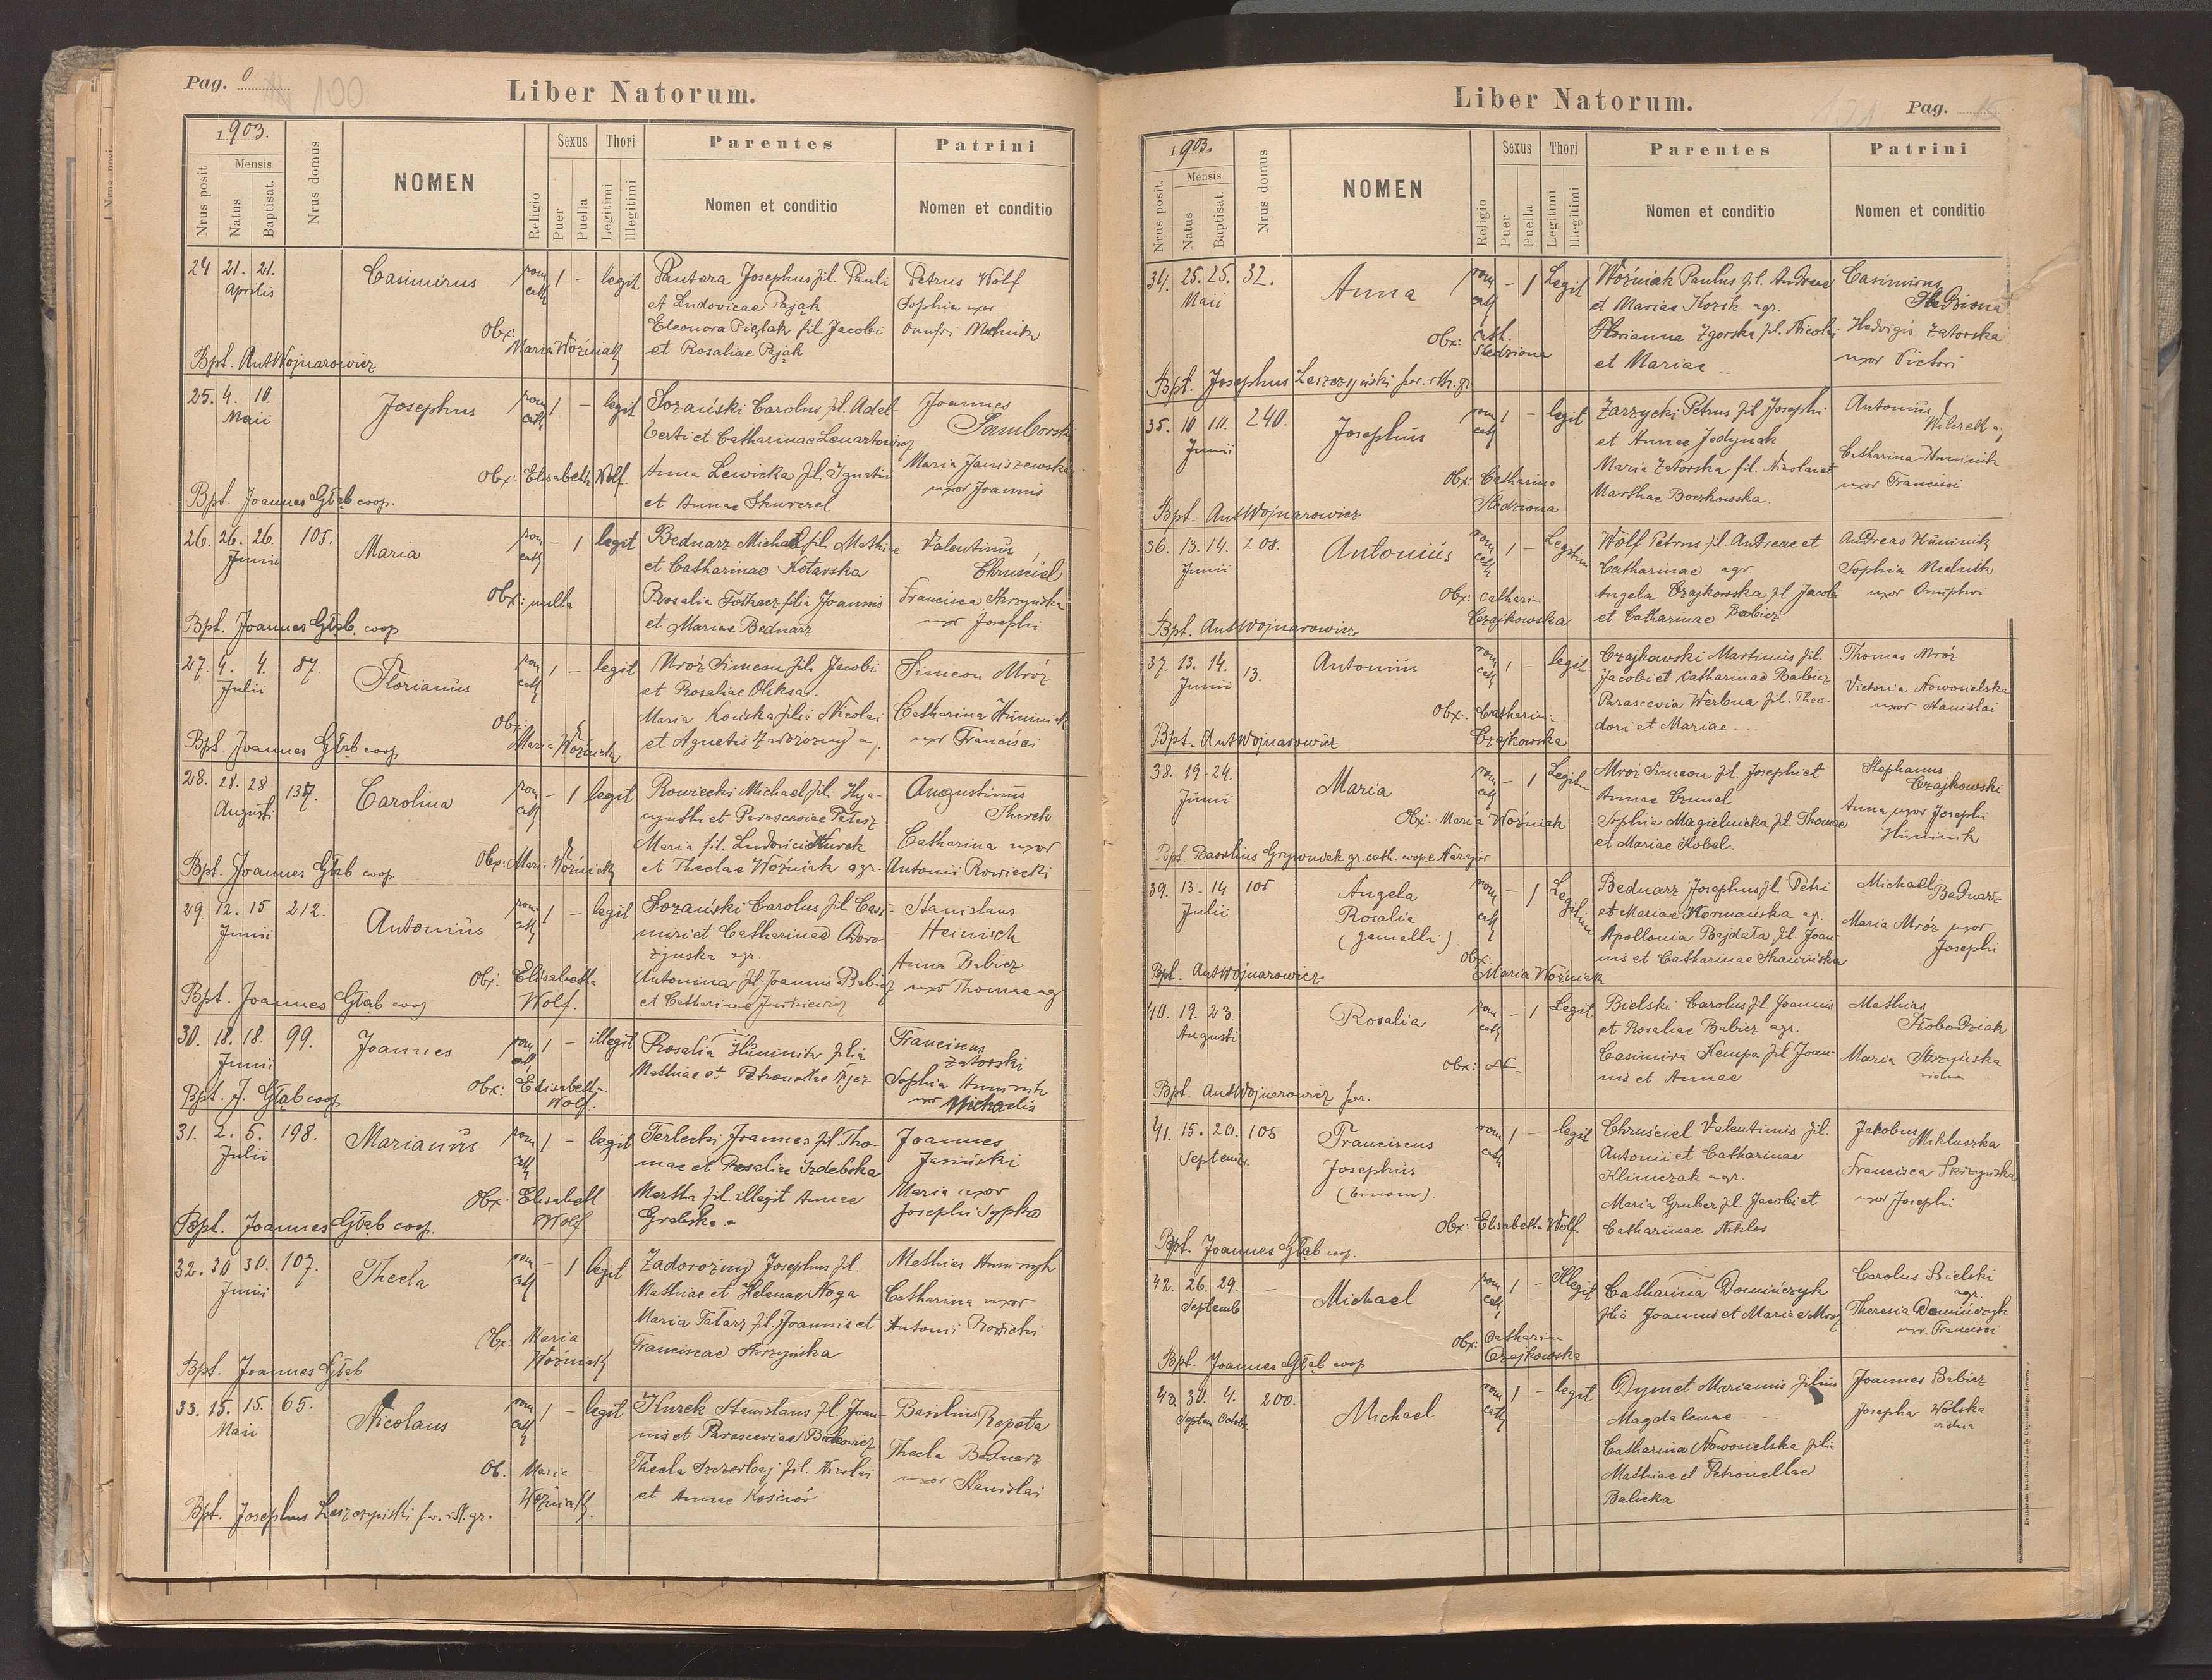 Pag. 0
100
Liber Natorum.
1903.
Nrus posit
Mensis
Natus
Baptisat.
Nrus domus
NOMEN
Religio
Sexus
Puer
Puella
Thori
Legitimi
Illegitimi
Parentes
Nomen et conditio
Patrini
Nomen et conditio
24 21. 21. Casimirus rom 1 – legit Pantera Josephus fil. Pauli Petrus Wolf
Aprilis cath et Ludovicae Pająk Sophia uxor
Obx: Eleonora Piętak fil. Jacobi Onufri Melnik
Maria Woźniak et Rosaliae Pająk
Bpt. AntWojnarowicz
25. 4. 10. Josephus rom 1 – legit Sozański Carolus fil. Adal- Joannes
Maii cath berti et Catharinae Lenartowicz Samborski
Obx: Elisabeth Wolf. Anna Lewicka fil. Ignatii Maria Janiszewska
et Annae Skurzel uxor Joannis
Bpt. Joannes Głąb coop.
26. 26. 26. 105. Maria rom – 1 legit Bednarz Michael fil. Mathiae Valentinus
Junii cath et Catharinae Kotarska Chruściel
Obx: nulla Rosalia filia Joannis Francisca Skrzyńska
et Mariae Bednarz uxor Josephi
Bpt. Joannes Głąb. coop
27. 4. 4. 87. Florianus rom 1 – legit Mróz Simeon fil. Jacobi Simeon Mróz
Julii cath et Rosaliae Oleksa.
Obx: Maria Końska filia Nicolai Catharina Huminik
Maria Woźniak et Agnetis Zadorozny uxor Francisci
Bpt. Joannes Głąb coop
28. 28. 28 137. Carolina rom – 1 legit Rowiecki Michael fil. Hya- Augustinus
Augusti cath cynthi et Parasceviae Kurek
Maria fil. Ludovici Kurek Catharina uxor
Obx: Maria Woźniak et Theclae Woźniak agr. Antonii Rowiecki
Bpt. Joannes Głąb coop
29. 12. 15 212. Antonius rom 1 – legit Sozański Carolus fil. Casi- Stanislaus
Junii cath miri et Catharinae Doro- Heinisch
żyńska agr. Anna Babicz
Obx: Elisabetha Antonina fil. Joannis Babicz uxor Thomae agr
Wolf. et Catharinae
Bpt. Joannes Głąb coop
30. 18. 18. 99. Joannes rom 1 – illegit Rosalia Huminik filia Franciscus
Junii cath Mathiae et Petronellae Zatorski
Obx: Elisabetha Sophia Huminik
Wolf. uxor Michaelis
Bpt. J. Głąb coop
31. 2. 5. 198. Marianus rom 1 – legit Terlecki Joannes fil. Tho- Joannes
Julii cath mae et Rosaliae Izdebska Jasiński
Obx: Elisabeth Martha fil. illegit Annae Maria uxor
Wolf Grabska Josephi Sypko
Bpt. Joannes Głąb coop.
32. 30 30. 107. Thecla rom – 1 legit Zadorożny Josephus fil. Mathias Huminyk
Junii cath Mathiae et Helenae Noga Catharina uxor
Obx: Maria Maria Tatarz fil. Joannis et Antonii Rowiecki
Woźniak Franciscae Skrzyńska
Bpt. Joannes Głąb
33. 15. 15. 65. Nicolaus rom 1 – legit Kurek Stanislaus fil. Joan- Basilius Repeta
Maii cath nis et Parasceviae Thecla Bednarz
Ob. Maria Thecla Szczerbaj fil. Nicolai uxor Stanislai
Woźniak. et Annae Kościów
Bpt. Josephus Leszczyński r. gr.
Liber Natorum.
131 Pag.
1903.
Nrus posit.
Mensis
Natus
Baptisat.
Nrus domus
NOMEN
Religio
Sexus
Puer
Puella
Thori
Legitumi
Illegitimi
Parentes
Nomen et conditio
Patrini
Nomen et conditio
34. 25. 25. 32. Anna rom – 1 Legit Woźniak Paulus fil. Andreae Casimirus
Maii cath et Mariae Kozik agr. Śledziona
Obx: Cath. Florianna Zgorska fil. Nicolai Hedvigis Zatorska
Śledziona et Mariae uxor Victori
Bpt. Josephus Leszczyński
35. 10 10. 240. Josephus rom 1 – legit Zarzycki Petrus fil Josephi Antonius
Junii cath et Annae Jedynak
Obx: Catharina Maria Zatorska fil. Nicolai et Catharina Huminik
Śledziona Marthae Boczkowska. uxor Francisci
Bpt. AntWojnarowicz
36. 13. 14. 208. Antonius rom 1 – Legitim Wolf Petrus fil. Andreae et Andreas Huminik
Junii cath Catharinae agr. Sophia Mielnik
Obx: Catharin Angela Czajkowska fil. Jacobi uxor Onuphri
Czajkowska et Catharinae Babicz
Bpt. AntWojnarowicz
37. 13. 14. 13. Antonius rom 1 – legit Czajkowski Martinus fil. Thomas Mróz
Junii cath Jacobi et Catharinae Babicz Victoria Nowosielska
Obx: Catharina Parascevia Werbna fil. Theo- uxor Stanislai
Czajkowska dori et Mariae
Bpt. AntWojnarowicz
38. 19. 24. Maria rom – 1 Legitim Mróz Simeon fil. Josephi et Stephanus
Junii cath Annae Czmiel Czajkowski
Obx: Maria Woźniak Sophia Magielnicka fil. Thomae Anna uxor Josephi
et Mariae Kobel. Huminik
Bpt. Basilius gr. cath. coop e Narajów
39. 13. 14 105 Angela rom – 1 Legitim Bednarz Josephus fil. Petri Michael Bednarz
Julii Rosalia cath et Mariae Kormańska agr. Maria Mróz uxor
(gemelli). Apollonia Bajdała fil. Joan- Josephi
Obx: Maria Woźniak nis et Catharinae Skawińska
Bpt. AntWojnarowicz
40. 19. 23. Rosalia rom – 1 Legit Bielski Carolus fil Joannis Mathias
Augusti cath et Rosaliae Babicz agr. Słobodziak
Obx: N– Casimira Kempa fil. Joan- Maria Skrzyńska
nis et Annae vidua
Bpt. AntWojnarowicz
41. 15. 20. 105 Franciscus rom 1 – legit Chruściel Valentinus fil. Jakobus Mikluszka
Septemb. Josephus cath Antonii et Catharinae Francisca Skrzyńska
(binom). Klimczak agr. uxor Josephi
Maria Gruber fil. Jacobi et
Obx: Elisabetha Wolf. Catharinae Niklos
Bpt. Joannes Głąb coop.
42. 26. 29. – Michael rom 1 – Illegit Catharina Domińczyk Carolus Bielski
Septemb cath filia Joannis et Mariae Mroz agr.
Obx: Catharina Theresia Domińczyk
Czajkowska uxor. Francisci
Bpt. Joannes Głąb coop
43. 30. 4. 200. Michael rom 1 – legit Dymet Marianus filius Joannes Babicz
Septem Octobr. cath Magdalenae Josepha Wolska
Catharina Nowosielska filia vidua
Mathiae et Petronellae
Balicka